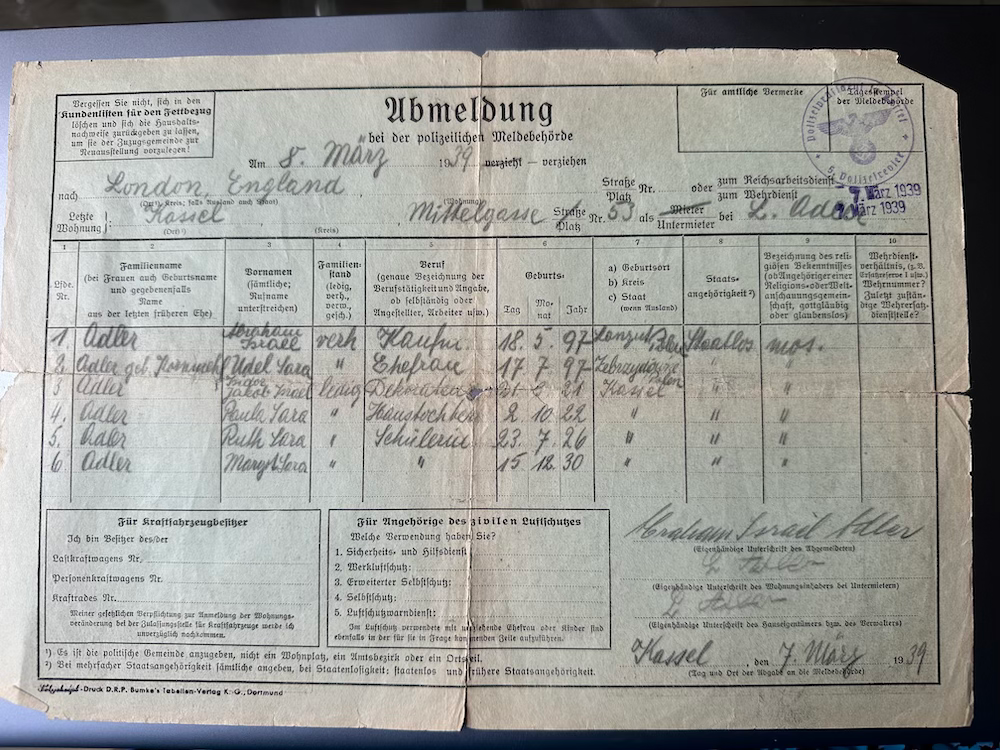 Vergessen Sie nicht, sich in den
Kundenlisten für den Fettbezug
löschen und sich die Haushalts-
nachweise zurückgeben zu lassen,
um sie der Zuzugsgemeinde zur
Neuausstellung vorzulegen!
Abmeldung
bei der polizeilichen Meldebehörde
Für amtliche Vermerke
Tagesstempel
der Meldebehörde
5. Polizeirevier
Am 8. März 1939 verzieht — verziehen
nach London, England
(Ort¹), Kreis, falls Ausland auch Staat)
(Wohnung)
Straße
Platz
Nr. oder zum Reichsarbeitsdienst
zum Wehrdienst
7. März 1939
7. März 1939
Letzte
Wohnung
Kassel
(Ort¹) (Kreis)
Mittelgasse Straße
Platz
Nr. 53 als Mieter
Untermieter
bei L. Adler
1 2 3 4 5 6 7 8 9 10
Lfde.
Nr.
Familienname
(bei Frauen auch Geburtsname
und gegebenenfalls
Name
aus der letzten früheren Ehe)
Vornamen
(sämtliche;
Rufname
unterstreichen)
Familien-
stand
(ledig,
verh.,
verw.,
gesch.)
Beruf
(genaue Bezeichnung der
Berufstätigkeit und Angabe,
ob selbständig oder
Angestellter, Arbeiter usw.)
Geburts-
Tag Mo-
nat Jahr
a) Geburtsort
b) Kreis
c) Staat
(wenn Ausland)
Staats-
angehörigkeit²)
Bezeichnung des reli-
giösen Bekenntnisses
(ob Angehöriger einer
Religions- oder Welt-
anschauungsgemein-
schaft, gottgläubig
oder glaubenslos)
Wehrdienst-
verhältnis, (z.B.
Ersatzreserve I usw.)
Wehrnummer?
Zuletzt zustän-
dige Wehrersatz-
dienststelle?
1. Adler Abraham Israel verh Kaufm. 18. 5. 97 Staatlos mos.
2. Adler geb. Udel Sara " Ehefrau 17 7 97 " "
3 Adler Jakob Israel ledig 21 Kassel " "
4. Adler Paula Sara " Haustochter 2. 10. 22 " " "
5. Adler Ruth Sara " Schülerin 23. 7. 26 " " "
6 Adler Margot Sara " " 15 12. 30 " " "
Für Kraftfahrzeugbesitzer
Ich bin Besitzer des/der
Lastkraftwagens Nr.
Personenkraftwagens Nr.
Kraftrades Nr.
Meiner gesetzlichen Verpflichtung zur Anmeldung der Wohnungs-
veränderung bei der Zulassungsstelle für Kraftfahrzeuge werde ich
unverzüglich nachkommen.
Für Angehörige des zivilen Luftschutzes
Welche Verwendung haben Sie?
1. Sicherheits- und Hilfsdienst
2. Werkluftschutz:
3. Erweiterter Selbstschutz:
4. Selbstschutz:
5. Luftschutzwarndienst:
Im Luftschutz verwendete mit verziehende Ehefrau oder Kinder sind
ebenfalls in der für sie in Frage kommenden Zeile aufzuführen.
Abraham Israel Adler
(Eigenhändige Unterschrift des Abgemeldeten)
L. Adler
(Eigenhändige Unterschrift des Wohnungsinhabers bei Untermietern)
L. Adler
(Eigenhändige Unterschrift des Hauseigentümers bzw. des Verwalters)
Kassel den 7. März 1939
(Tag und Ort der Abgabe an die Meldebehörde)
¹) Es ist die politische Gemeinde anzugeben, nicht ein Wohnplatz, ein Amtsbezirk oder ein Ortsteil.
²) Bei mehrfacher Staatsangehörigkeit sämtliche angeben, bei Staatenlosigkeit: staatenlos und frühere Staatsangehörigkeit.
-Druck D.R.P. Bumke's Tabellen-Verlag K.-G., Dortmund